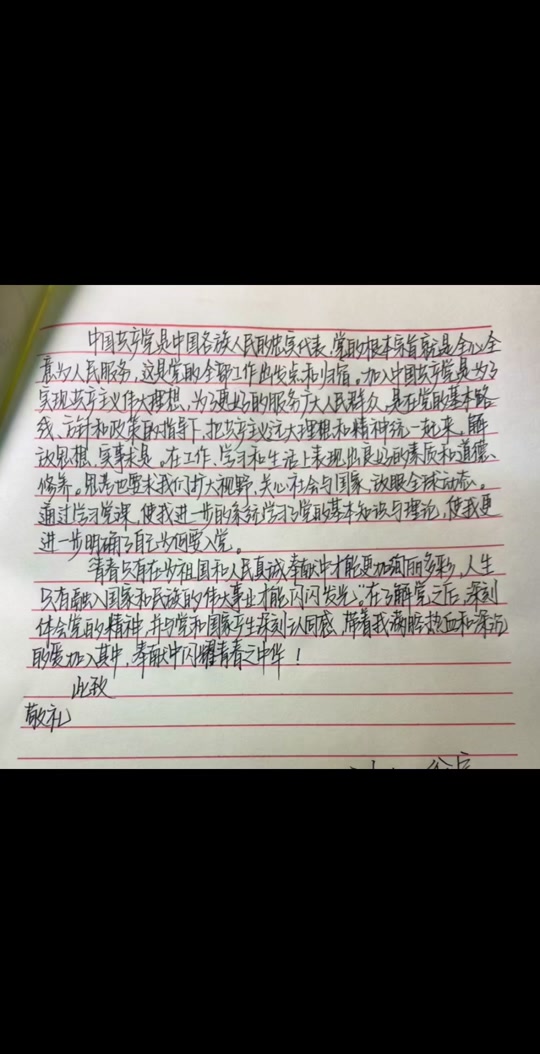 中国共产党是中国各族人民的忠实代表,党的根本宗旨就是全心全
意为人民服务,这是党的全部工作出发点和归宿。加入中国共产党是为了
实现共产主义伟大理想,为了更好的服务广大人民群众,是在党的基本路
线、方针和政策的指导下,把共产主义远大理想和精神统一起来。解
放思想、实事求是。在工作、学习和生活上表现出良好的素质和道德
修养。思想也要求我们扩大视野,关心社会与国家,放眼全球动态。
通过学习党课,使我进一步的系统学习了党的基本知识与理论,使我更
进一步明确了自己为何要入党。
青春只有在为祖国和人民真诚奉献中才能更加绚丽多彩,人生
只有融入国家和民族的伟大事业才能闪闪发光”在了解党之后,深刻
体会党的精神,并与党和国家产生深刻认同感,带着我满腔热血和深沉
的爱加入其中,奉献中闪耀青春之中华!
此致
敬礼